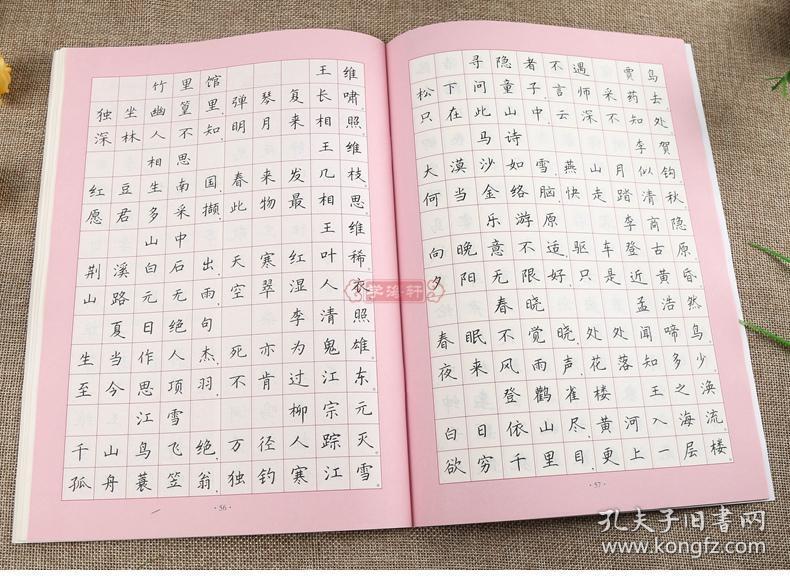 竹里馆 王维
独坐幽篁里，弹琴复长啸。
深林人不知，明月来相照。
相思 王维
红豆生南国，春来发几枝。
愿君多采撷，此物最相思。
山中 王维
荆溪白石出，天寒红叶稀。
山路元无雨，空翠湿人衣。
夏日绝句 李清照
生当作人杰，死亦为鬼雄。
至今思项羽，不肯过江东。
江雪 柳宗元
千山鸟飞绝，万径人踪灭。
孤舟蓑笠翁，独钓寒江雪。
·56·
寻隐者不遇 贾岛
松下问童子，言师采药去。
只在此山中，云深不知处。
马诗 李贺
大漠沙如雪，燕山月似钩。
何当金络脑，快走踏清秋。
乐游原 李商隐
向晚意不适，驱车登古原。
夕阳无限好，只是近黄昏。
春晓 孟浩然
春眠不觉晓，处处闻啼鸟。
夜来风雨声，花落知多少。
登鹳雀楼 王之涣
白日依山尽，黄河入海流。
欲穷千里目，更上一层楼。
·57·
学海轩
孔夫子旧书网
www.kongfz.com